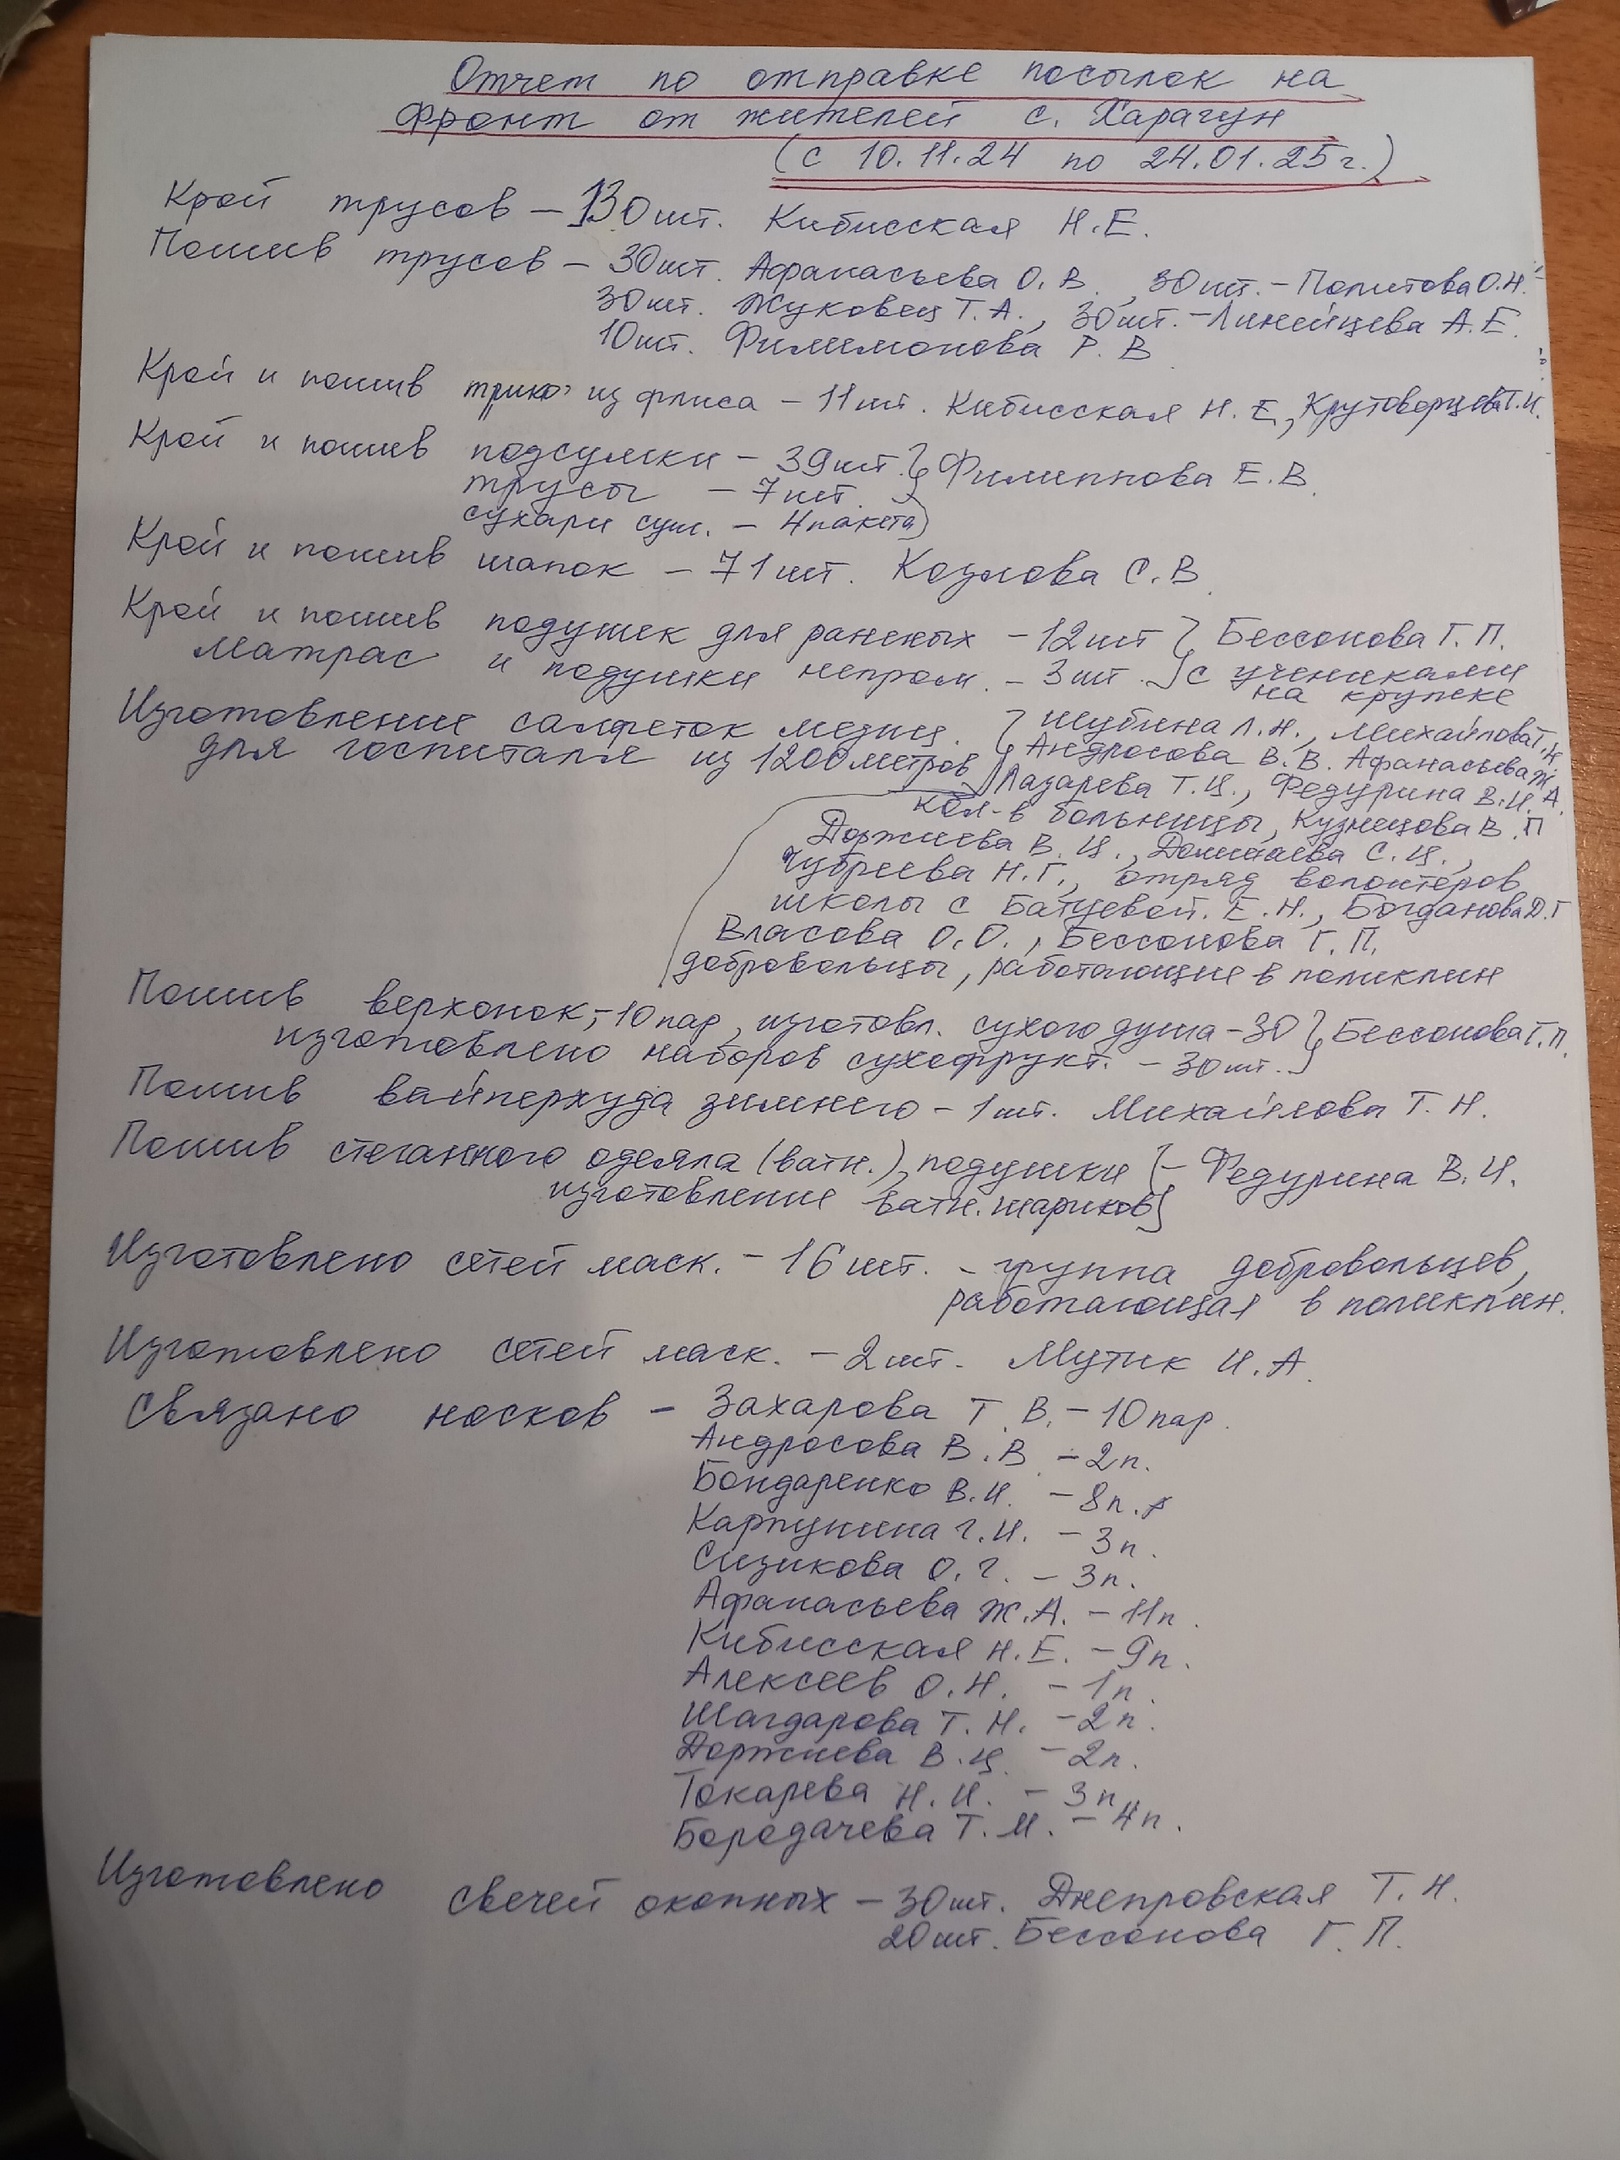 Отчет по отправке посылок на
фронт от жителей с. Харагун
(с 10.11.24 по 24.01.25г.)
Крой трусов – 130шт. Кибисская Н.Е.
Пошив трусов – 30шт. Афанасьева О.В., 30шт. – Политова О.Н.
30шт. Жуковец Т.А., 30шт. – Линейцева А.Е.
10шт. Филимонова Р.В
Крой и пошив трико из флиса – 11шт. Кибисская Н.Е, Крутоворцева Т.И.
Крой и пошив подсумки – 39шт. } Филиппова Е.В.
трусы – 7шт.
сухари суш. – 4пакета
Крой и пошив шапок – 71шт. Козлова С.В.
Крой и пошив подушек для раненых – 12шт } Бессонова Г.П.
матрас и подушки непром. – 3шт. } с учениками
на кружке
Изготовление салфеток медиц. } Шубина Л.Н., Михайлова Т.Н
для госпиталя из 1200метров Андросова В.В. Афанасьева Ж.А.
Лазарева Т.Ц., Федурина В.И.
кол-в больницы, Кузнецова В.П
Доржиева В.Ц., С.Ц.,
Чубреева Н.Г., отряд волонтёров
школы с Батуевой. Е.Н., Богданова Д.Г
Власова О.О., Бессонова Г.П.
добровольцы, работающие в поликлин
Пошив верхонок, – 10пар, изготовл. сухого душа – 30 } Бессонова Г.П.
изготовлено наборов сухофрукт. – 30шт. }
Пошив вайперхуда зимнего – 1шт. Михайлова Т.Н.
Пошив стеганного одеяла (ватн.), подушки } – Федурина В.И.
изготовление ватн. шариков }
Изготовлено сетей маск. – 16шт. – группа добровольцев,
работающая в поликлин.
Изготовлено сетей маск. – 2шт. Мутик И.А.
Связано носков – Захарова Т.В. – 10пар.
Андросова В.В – 2п.
Бондаренко В.И. – 8п.
Карпунина Г.И. – 3п.
Сизикова О.Г. – 3п.
Афанасьева Ж.А. – 11п.
Кибисская Н.Е. – 9п.
Алексеев О.Н. – 1п.
Шагдарова Т.Н. – 2п.
Доржиева В.Ц. – 2п.
Токарева Н.И. – 3п.
Бородачева Т.М. – 4п.
Изготовлено свечей окопных – 30шт. Днепровская Т.Н.
20шт. Бессонова Г.П.